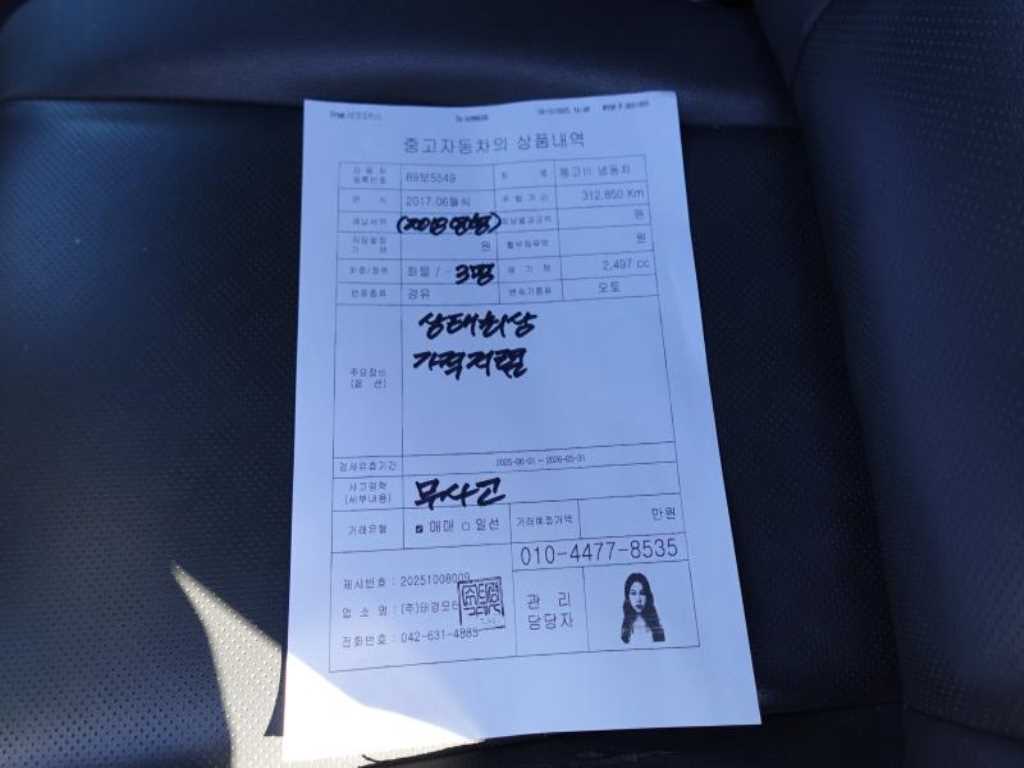 중고자동차의 상품내역
자동차 등록번호 89보5549 차 명 봉고III 냉동차
연 식 2017.06월식 주행거리 312,850 Km
원
원 원
화물 / 3명 배기량 2,497 cc
연료종류 경유 변속기종류 오토
상태최상
가격저렴
주요장비
(옵 션)
검사유효기간 2025-06-01 ~ 2026-05-31
사고이력
(세부내용) 무사고
거래유형 ☑ 매매 □ 알선 거래예정가액 만원
010-4477-8535
제시번호 : 20251008009
업 소 명 : (주)태경모터
전화번호 : 042-631-4885
관 리
담당자